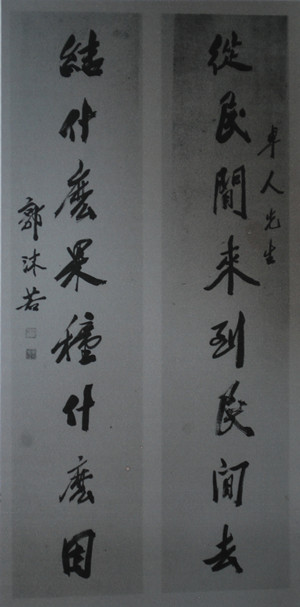 從民間来到民间去
卓人先生
結什麽果種什麽因
郭沫若